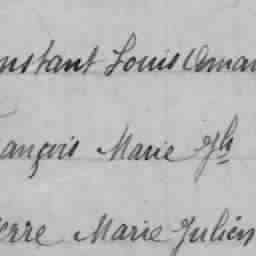 onstant Louis Aman
ançois Marie Jh
ierre Marie Julien